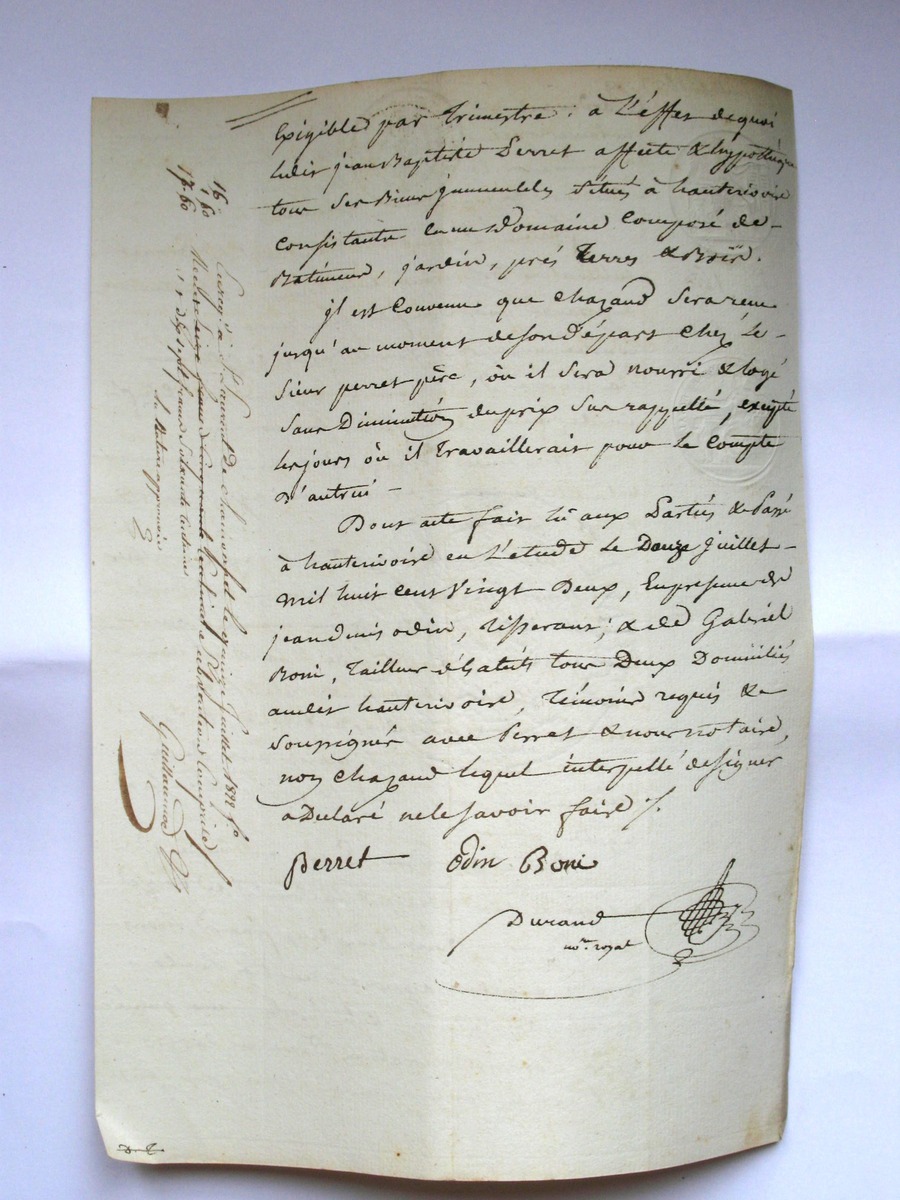 Exigible par Trimestre : à L'effet de quoi
ledit jean Baptiste Perret affecte & hypothèque
tous ses Biens jmmeubles situés à hauterivoire
Consistants en un Domaine Composé de
Batimens, jardin, prés Terres & Bois.
jl est Convenu que Chazaud sera tenu
jusqu'au moment de son départ Chez Le
Sieur perret père, où il sera nourri & logé
sans Diminution du prix sus rappellé, excepté
les jours où il Travaillerait pour le Compte
d'autrui –
Dont acte fait lû aux Parties & Passé
à hauterivoire en L'etude le Douze juillet
mil huit cent Vingt Deux, En presence de
jean denis odin, Tisserant ; & de Gabriel
Boni, Tailleur d'habits tous Deux Domiciliés
audit hauterivoire, Témoins requis &
soussignés avec Perret & nous notaire,
non Chazaud lequel interpellé de signer
a Déclaré ne le savoir faire ./.
Perret Odin Boni
Durand
no.re royal
16
1,60
17.60
à St Laurent De Chamousset le quinze juillet 1822 fo
Reçu seize francs
dix sept francs soixante centimes
D. T.